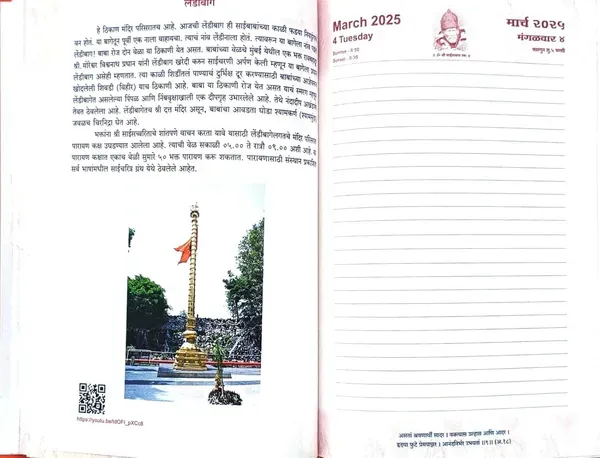 लेंडीबाग
हे ठिकाण मंदिर परिसरातच आहे. आजची लेंडीबाग ही साईबाबांच्या काळी फडया निवडुंगाचे
बन होतं. या बागेतून पूर्वी एक नाला वाहायचा. त्याचं नांव लेंडीनाला होतं. त्यावरून या बागेला नांव पडलं
लेंडीबाग! बाबा रोज दोन वेळा या ठिकाणी येत असत. बाबांच्या वेळचे मुंबई येथील एक भक्त
श्री. मोरेश्वर विश्वनाथ प्रधान यांनी लेंडीबाग खरेदी करून साईचरणी अर्पण केली म्हणून या बागेला प्रधान
लेंडीबाग असेही म्हणतात. त्या काळी शिर्डीतलं पाण्याचं दुर्भिक्ष दूर करण्यासाठी बाबांच्या
खोदलेली शिवडी (विहीर) याच ठिकाणी आहे. बाबा या ठिकाणी रोज येत असत याचं स्मारण म्हणून
लेंडीबागेत असलेल्या पिंपळ आणि निंबवृक्षाखाली एक दीपगृह उभारलेलं आहे. तेथे नंदादीप अखंड
तेवत ठेवलेला आहे. लेंडीबागेतच श्री दत्त मंदिर असून, बाबांचा आवडता घोडा श्यामकर्ण
जवळच चिरनिद्रा घेत आहे.
भक्तांना श्री साईसच्चरिताचे शांतपणे वाचन करता यावे यासाठी लेंडीबागेलगतचे मंदिर परिसरात
पारायण कक्ष उघडण्यात आलेला आहे. त्याची वेळ सकाळी ०५.०० ते रात्री ०९.०० अशी आहे. या
पारायण कक्षात एकाच वेळी सुमारे ५० भक्त पारायण करू शकतात. पारायणासाठी संस्थान प्रकाशित
सर्व भाषांमधील साईचरित्र ग्रंथ येथे ठेवलेले आहेत.
https://youtu.be/tdOFI_pXCc8
March 2025
4 Tuesday
Sunrise - 6:50
Sunset - 6:35
मार्च २०२५
मंगळवार ४
फाल्गुन शु. ५ शके
असता श्रवणार्थी सादर । वक्त्यास उल्हास आणि आदर ।
हृदया फुटे प्रेमपाझर । आनंदनिर्भर उभयतां ॥९॥ (अ.१८)